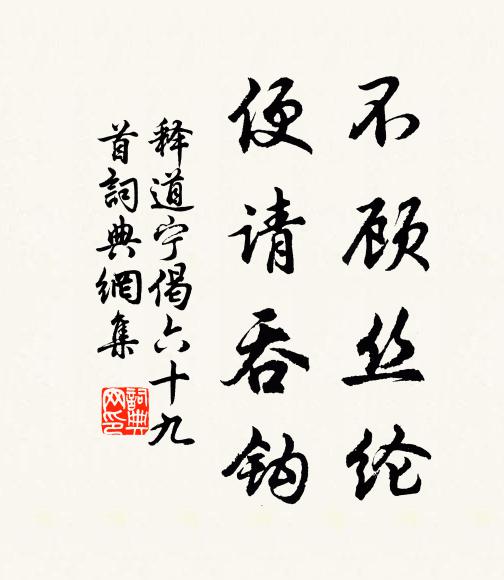 不顾丝纶
便请吞钩
释道宁偈六十九
首詞典網集
詞典
网印